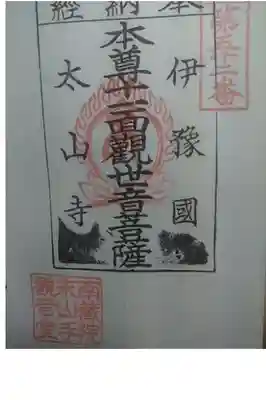 奉納經
第五十二番
伊豫國
本尊十一面觀世音菩薩
太山寺